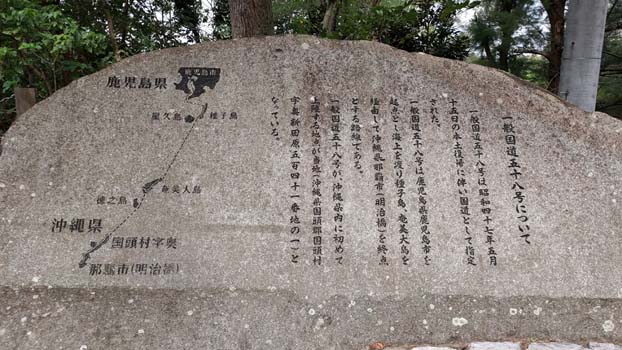 一般国道五十八号について
一般国道五十八号は昭和四十七年五月
十五日の本土復帰に伴い国道として指定
された。
一般国道五十八号は鹿児島県鹿児島市を
起点とし海上を渡り種子島、奄美大島を
経由して沖縄県那覇市(明治橋)を終点
とする路線である。
一般国道五十八号が、沖縄県内に初めて
上陸する地点が当地(沖縄県国頭郡国頭村
字奥新田原五百四十一番地の一)と
なっている。
鹿児島県
鹿児島市
屋久島
種子島
奄美大島
徳之島
沖縄県
国頭村字奥
那覇市(明治橋)